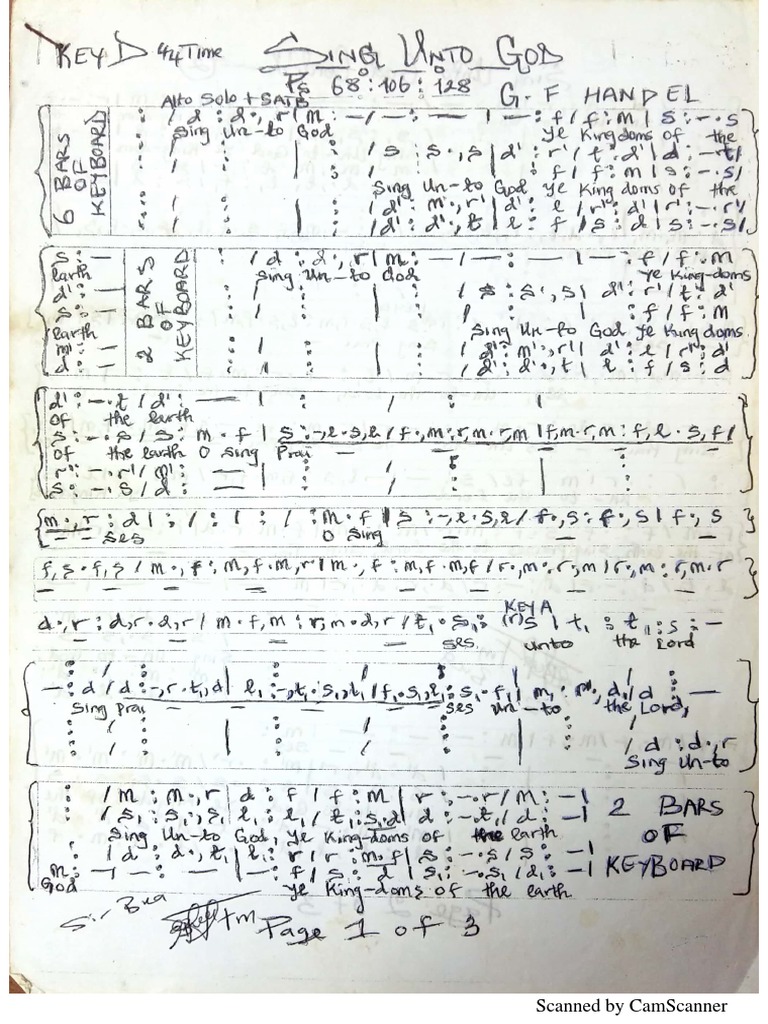 KEY D 4/4 Time SING UNTO GOD
Ps 68:106:128
Alto Solo + SATB G.F HANDEL
6 BARS OF KEYBOARD
: / d : d., r | m : — / — : — | — : f / f : m | s : -. s
Sing Un-to God ye Kingdoms of the
: / s : s., s | d' : r' / t : d' | d : -. t /
: f / f : m | s : -. s /
Sing Un-to God ye Kingdoms of the
/ d' : m'., r' | d' : l / r' : d' | r' : -. r' /
/ d' : d'., t | l : f / s : d | s : -. s /
s : — 2 BARS OF KEYBOARD : / d : d., r | m : — / — : — | — : f / f : m
earth Sing Un-to God ye King-doms
d' : — / s : s., s | d' : r' / t : d'
s : — : f / f : m
earth Sing Un-to God ye Kingdoms
m' : — / d' : m'., r' | d' : l / r' : d'
d : — / d' : d'., t | l : f / s : d
d' : -. t / d' : — | : / : |
of the earth
s : -. s / s : m . f | s : -, l . s, l / f ., m : r, m . r, m | f, m . r, m : f, l . s, f /
of the earth O sing Prai — — — —
r' : -. r' / m' : — | : / : | :
s : -. s / d : — | : / : | :
m ., r : d | : / : | : / : m . f | s : -, l . s, l / f ., s : f ., s | f ., s
— — ses O Sing — — —
f, s . f, s / m ., f : m, f . m, r / m ., f : m, f . m, f / r ., m : r, m / r ., m : r, m . r
— — — — — — —
d ., r : d, r . d, r / m . f, m : r, m . d, r / t₁ . s₁ : (r) s | t₁ : t₁ | s : —
KEY A
— — — — ses unto the Lord
— : d / d : -, r . t₁, d | l₁ : -, t₁ . s₁, t₁ / f₁ . s₁, l₁ : s₁ . f₁ | m₁ : m., d₁ / d : —
Sing Prai — — — — ses Un-to the Lord,
: / : | : / : | : / d : d., r
Sing Un-to
: / m : m., r | d : f / f : m | r : -. r / m : — |
: / s₁ : s₁., s₁ | l₁ : l₁ / t₁ : s₁. d | d : -. t₁ / d : — | 2 BARS
Sing Un-to God, ye King-doms of the earth OF
: / d : d., t₁ | l₁ : r / r : m . f | s : -. s / s : — | KEYBOARD
m : — | — : — | — : f / s : d | s₁ : -. s₁ / d₁ : — |
God ye King-doms of the earth
Page 1 of 3
Scanned by CamScanner